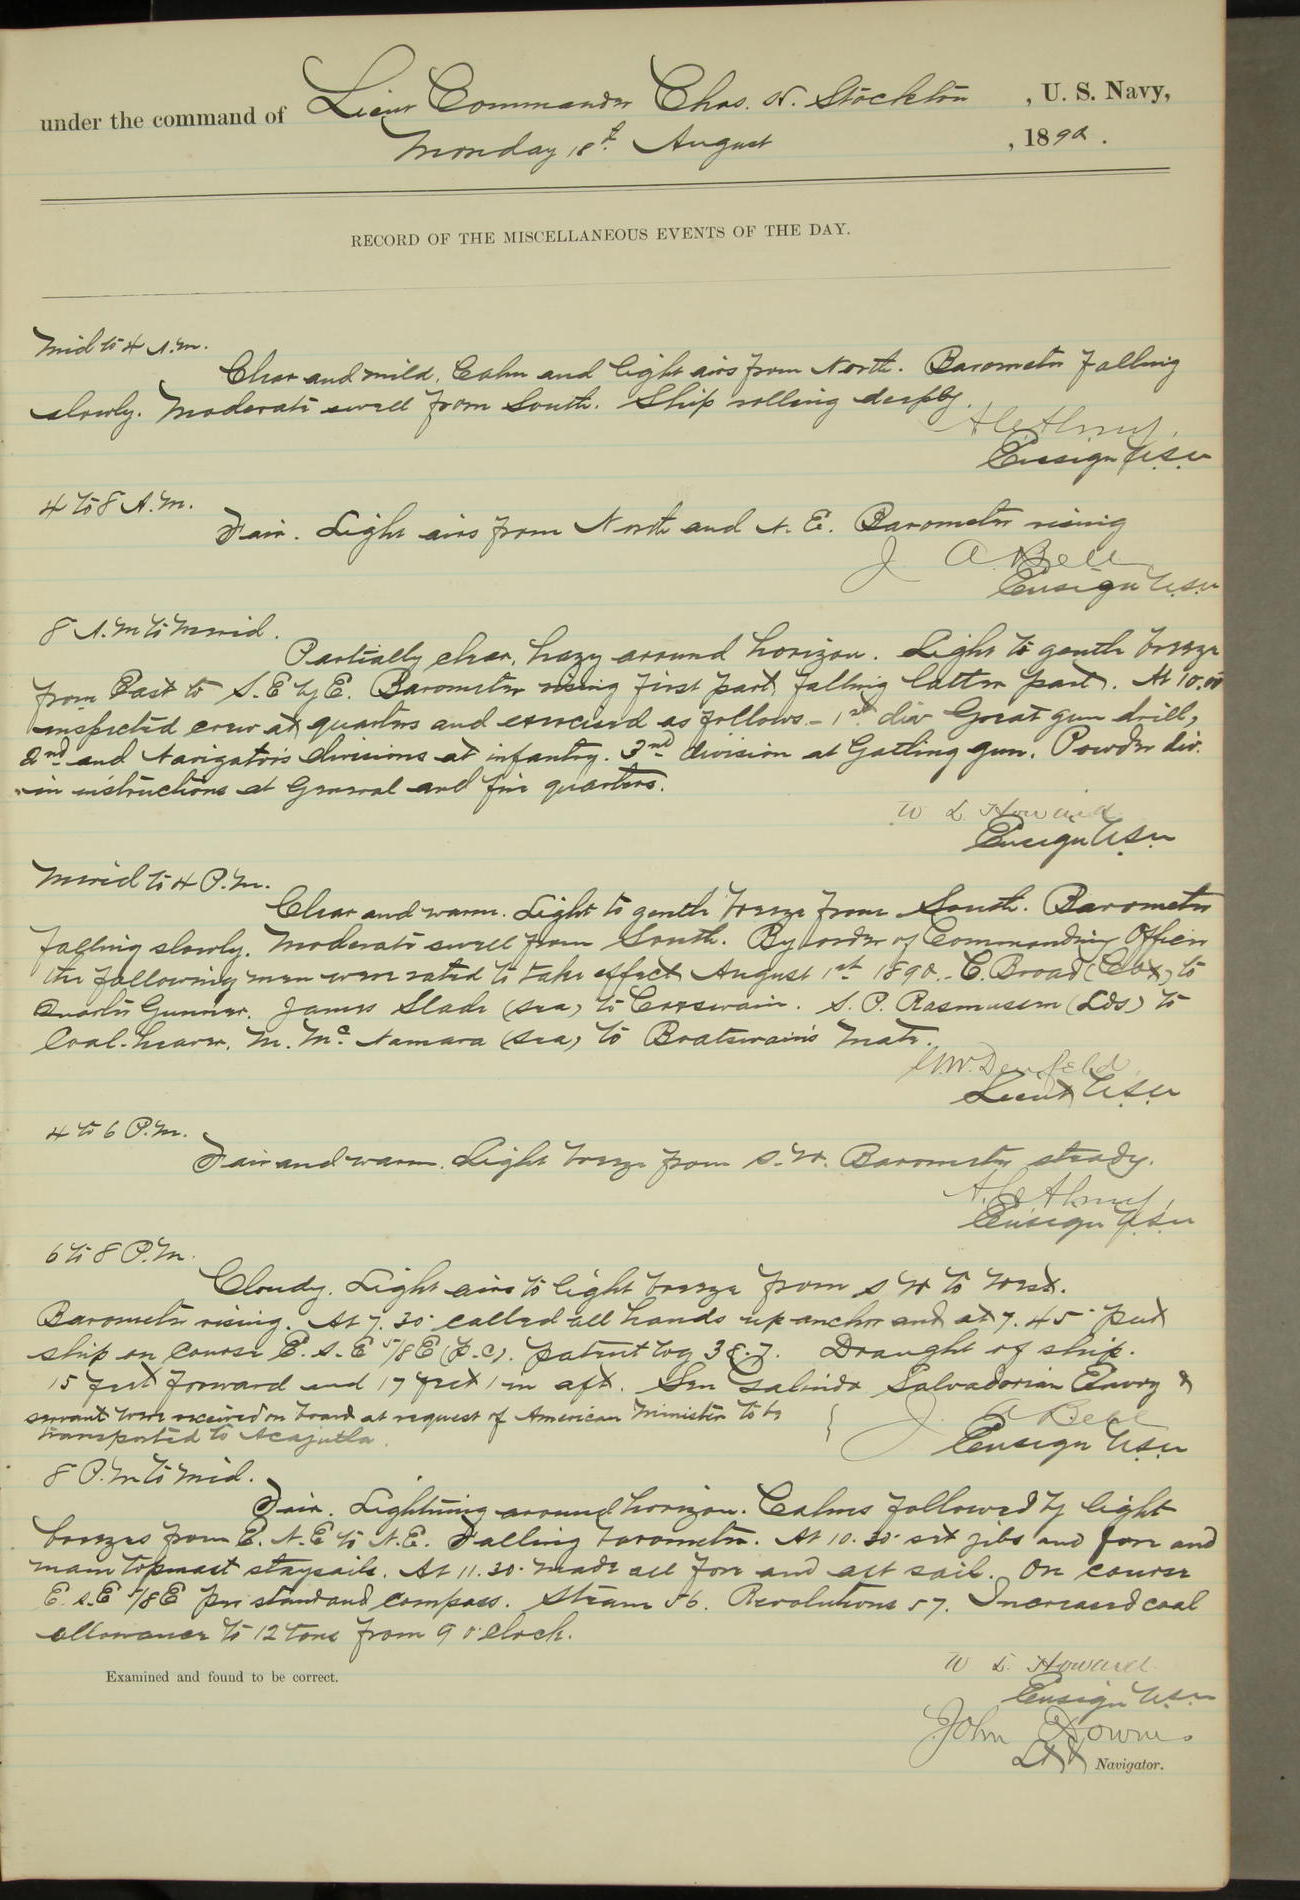 under the command of Lieut Commander Chas. H. Stockton , U. S. Navy,
Monday 18th August , 1890.
RECORD OF THE MISCELLANEOUS EVENTS OF THE DAY.
Mid to 4 A.M.
Clear and mild. Calm and light airs from North. Barometer falling
slowly. Moderate swell from South. Ship rolling deeply.
Ensign U.S.N
4 to 8 A.M.
Fair. Light airs from North and N. E. Barometer rising
J A Bell
Ensign U.S.N
8 A.M to Merid.
Partially clear, hazy around horizon. Light to gentle breeze
from East to S.E by E. Barometer rising first part, falling latter part. At 10.00
inspected crew at quarters and exercised as follows - 1st div Great gun drill,
2nd and Navigator's divisions at infantry. 3rd division at Gatling gun. Powder div.
in instructions at General and fire quarters.
W L Howard
Ensign U.S.N
Merid to 4 P.M.
Clear and warm. Light to gentle breeze from South. Barometer
falling slowly. Moderate swell from South. By order of Commanding Officer
the following men were rated to take effect August 1st 1890. C. Broad (Cox) to
Quarter Gunner. James Slade (sea) to Coxswain. S. P. Rasmussen (Lds) to
Coal-heaver. M. McNamara (sea) to Boatswain's Mate.
Lieut U.S.N
4 to 6 P.M.
Fair and warm. Light breeze from S.W. Barometer steady.
Ensign U.S.N
6 to 8 P.M.
Cloudy. Light airs to light breeze from S W to West.
Barometer rising. At 7.30 called all hands up anchor and at 7.45 put
ship on course E. S. E 5/8 E (p.c). Patent log 38.7. Draught of ship.
15 feet forward and 17 feet 1 in aft. Sen Galindo Salvadorian Envoy &
servant were received on board at request of American Minister to be
transported to Acajutla.
J A Bell
Ensign U.S.N
8 P.M to Mid.
Fair. Lightning around horizon. Calms followed by light
breezes from E. N.E to N.E. Falling barometer. At 10.30 set jibs and fore and
main topmast staysails. At 11.30 made all fore and aft sail. On course
E. S.E 5/8 E per standard compass. Steam 56. Revolutions 57. Increased coal
allowance to 12 tons from 9 o'clock.
W L Howard
Ensign U.S.N
Examined and found to be correct.
John Downes
Navigator.